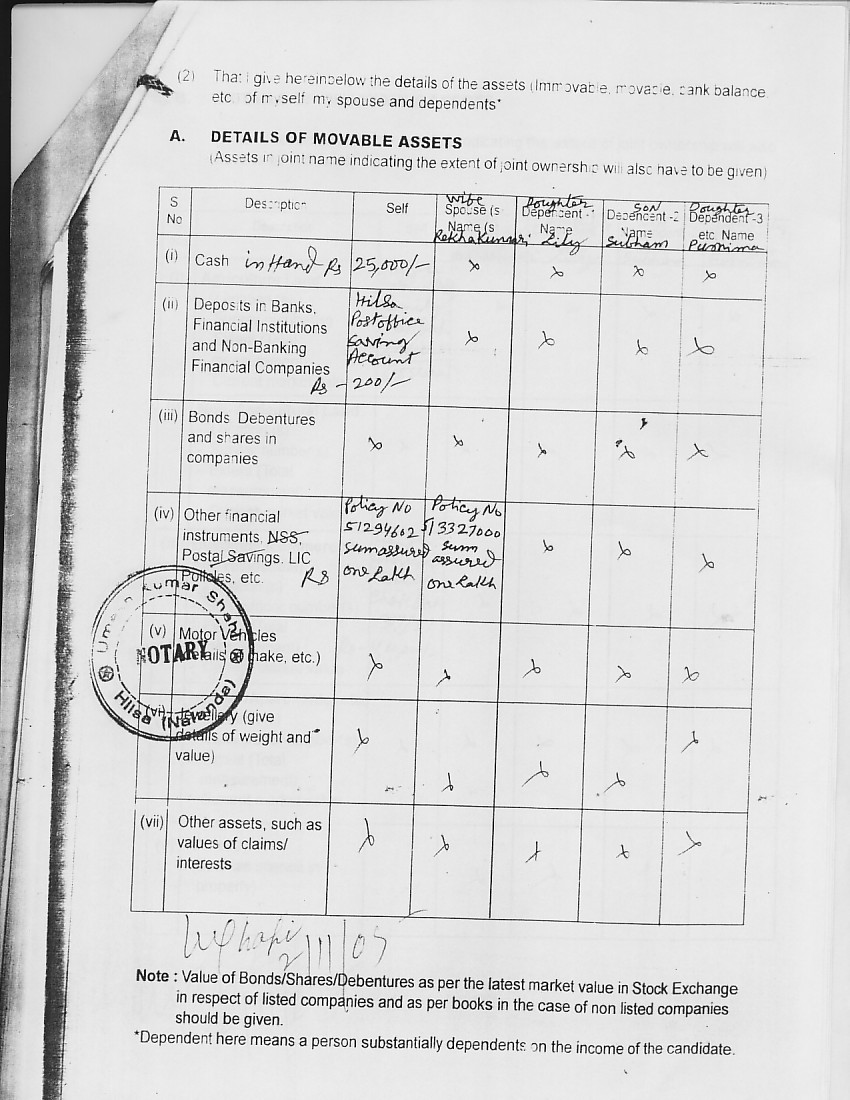 (2) That i give hereinbelow the details of the assets (Immovable, movable, bank balance
etc. of myself my spouse and dependents*
A. DETAILS OF MOVABLE ASSETS
(Assets in joint name indicating the extent of joint ownership will also have to be given)
S No Description Self Wife Spouse (s Name (s Rekha Kumari Doughter Dependent -1 Name Lity Son Dependent -2 Name Subham Doughter Dependent -3 etc. Name Purnima
(i) Cash in Hand Rs 25,000/- x x x x
(ii) Deposits in Banks, Hilsa
Financial Institutions Postoffice
and Non-Banking Saving x x x x
Financial Companies Account
Rs - 200/-
(iii) Bonds Debentures
and shares in x x x x x
companies
(iv) Other financial Policy No Policy No
instruments, NSS, 51294602 513327000
Postal Savings, LIC sum assured sum assured x x x
Policies, etc. Rs one Lakh one Lakh
(v) Motor Vehicles
details (make, etc.) x x x x x
(vi) Jewellery (give
details of weight and x x x x x
value)
(vii) Other assets, such as
values of claims/ x x x x x
interests
Kumar Shahi
NOTARY
Hilsa (Nalanda)
2/11/05
Note : Value of Bonds/Shares/Debentures as per the latest market value in Stock Exchange
in respect of listed companies and as per books in the case of non listed companies
should be given.
*Dependent here means a person substantially dependents on the income of the candidate.